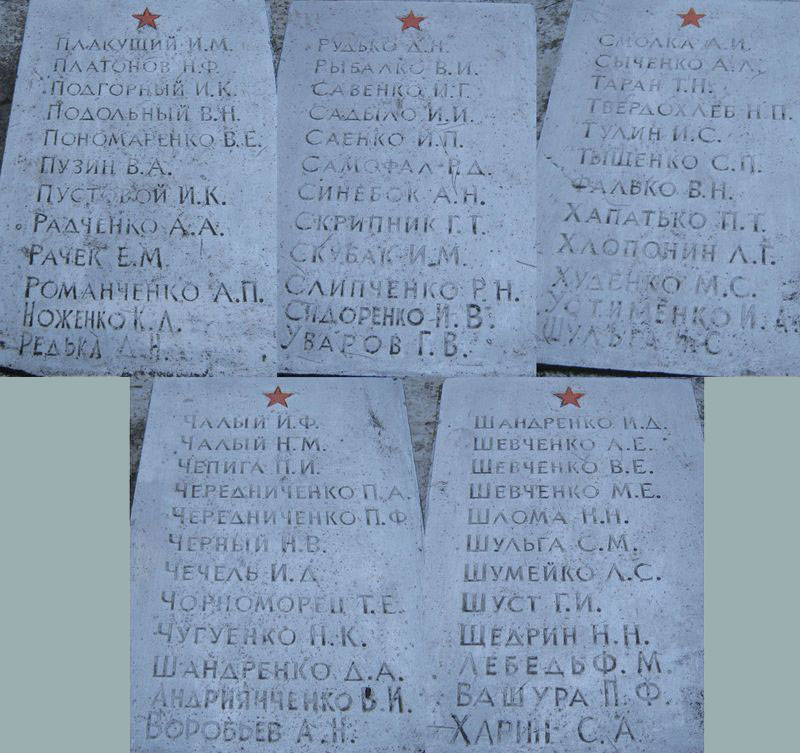 ПЛАКУЩИЙ И.М.
ПЛАТОНОВ Н.Ф.
ПОДГОРНЫЙ И.К.
ПОДОЛЬНЫЙ В.Н.
ПОНОМАРЕНКО В.Е.
ПУЗИН В.А.
ПУСТОВОЙ И.К.
РАДЧЕНКО А.А.
РАЧЕК Е.М.
РОМАНЧЕНКО А.П.
НОЖЕНКО К.Л.
РЕДЬКА
РУДЬКО Д.Н.
РЫБАЛКО В.И.
САВЕНКО И.Г.
САДЫЛО И.И.
САЕНКО И.П.
САМОФАЛ Р.Д.
СИНЕБОК А.Н.
СКРИПНИК Г.Т.
СКУБАК И.М.
СЛИПЧЕНКО Р.Н.
СИДОРЕНКО И.В.
УВАРОВ Г.В.
СМОЛКА А.И.
СЫЧЕНКО А.Л.
ТАРАН Т.Н.
ТВЕРДОХЛЕБ Н.П.
ТУЛИН И.С.
ТЫЩЕНКО С.П.
ФАЛЬКО В.Н.
ХАПАТЬКО П.Т.
ХЛОПОНИН Л.Г.
ХУДЕНКО М.С.
УСТИМЕНКО И.А.
ШУЛЬГА
ЧАЛЫЙ И.Ф.
ЧАЛЫЙ Н.М.
ЧЕПИГА П.И.
ЧЕРЕДНИЧЕНКО П.А.
ЧЕРЕДНИЧЕНКО П.Ф.
ЧЕРНЫЙ Н.В.
ЧЕЧЕЛЬ И.Д.
ЧОРНОМОРЕЦ Т.Е.
ЧУГУЕНКО Н.К.
ШАНДРЕНКО Д.А.
АНДРИЯНЧЕНКО В.И.
ВОРОБЬЕВ А.Н.
ШАНДРЕНКО И.Д.
ШЕВЧЕНКО Л.Е.
ШЕВЧЕНКО В.Е.
ШЕВЧЕНКО М.Е.
ШЛОМА Н.Н.
ШУЛЬГА С.М.
ШУМЕЙКО Л.С.
ШУСТ Г.И.
ЩЕДРИН Н.Н.
ЛЕБЕДЬ Ф.М.
ВАШУРА П.Ф.
ХАРИН С.А.